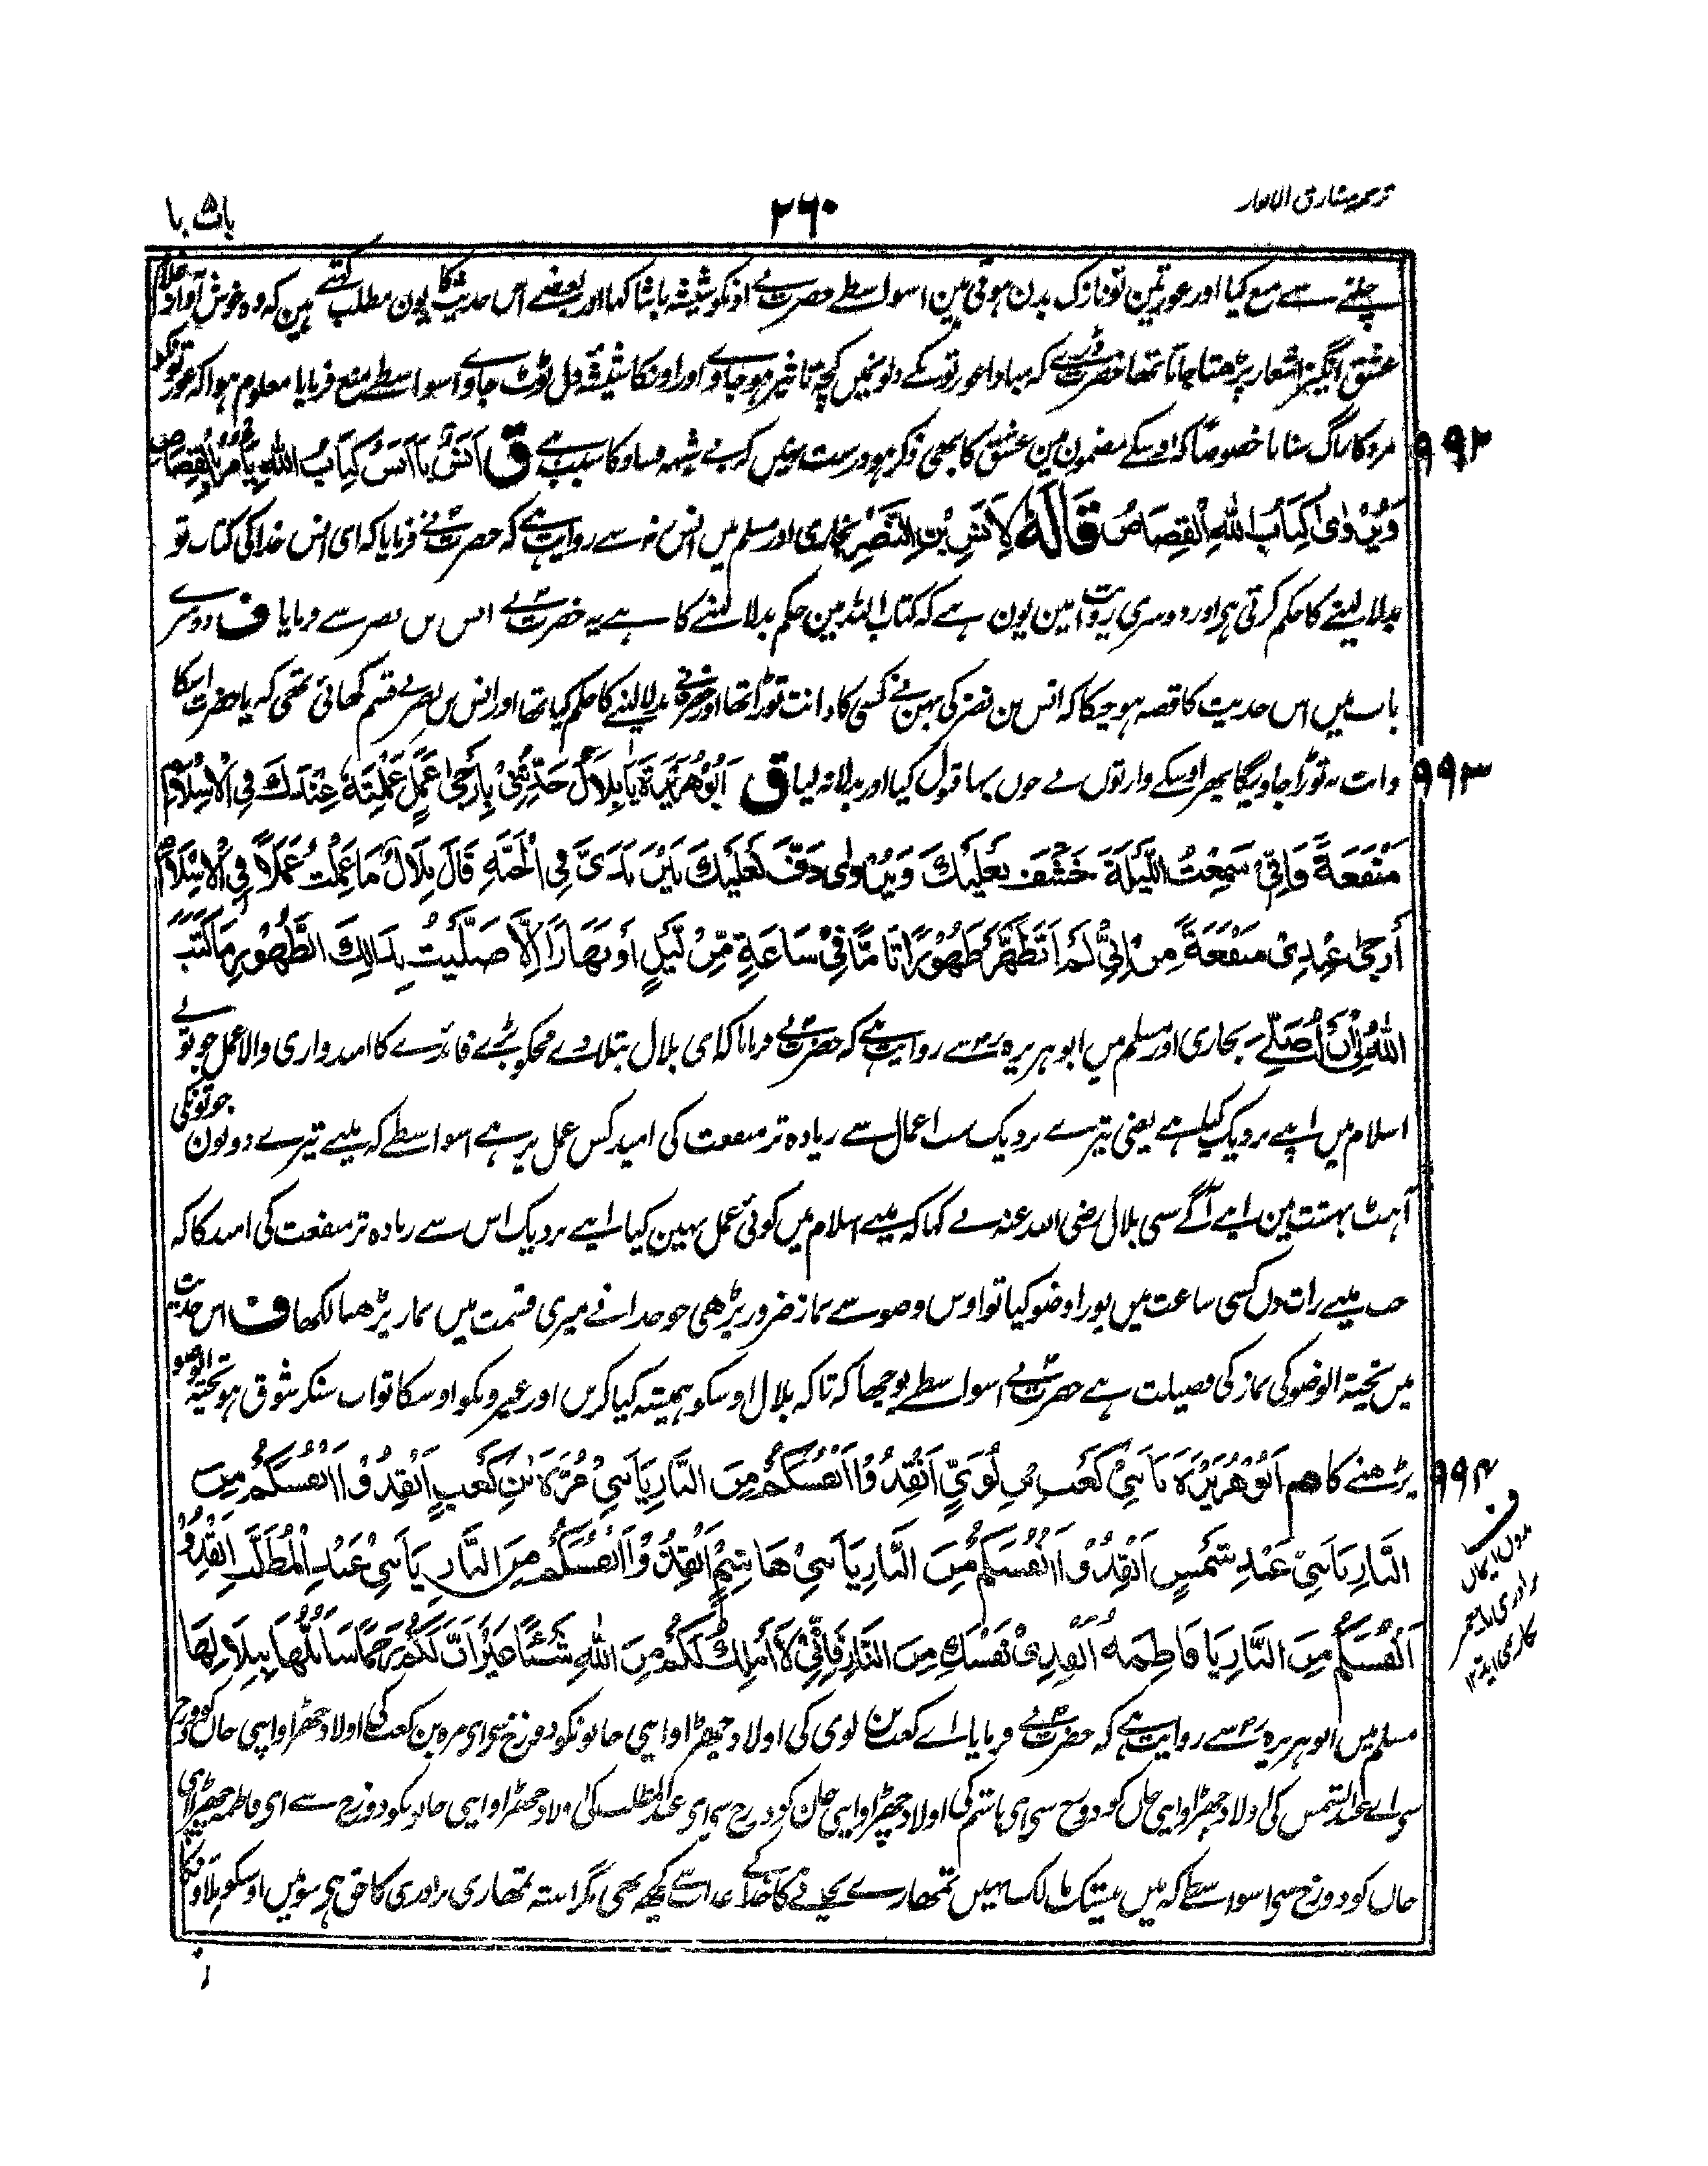 ترجمہ مشارق الانوار
۲۶۰
باب ۵ یا
چلنے سے منع کیا اور عورتین تو نازک بدن ہوتی ہین اسواسطے حضرت نے اونکو شیشہ باشا کہا اور بعضے اس حدیث کا یون مطلب کہتے ہین کہ وہ خوش آواز غلام
عشق انگیز اشعار پڑھتا جاتا تھا حضرت ڈرے کہ مبادا عورتوں کے دلونمیں کچھ تاثیر ہو جاوے اور اونکا شیشۂ دل ٹوٹ جاوے اسواسطے منع فرمایا معلوم ہوا کہ عورتونکو
۹۹۲
مرد کا راگ سنانا خصوصاً کہ اوسکے مضمون مین عشق کا بھی ذکر ہو درست نہیں کہ بے شبہہ فساد کا سبب ہے ق اَنَسٌ یَا اَنَسُ کِتَابُ اللهِ یَأْمُرُ بِالْقِصَاصِ
وَیُرْوٰی کِتَابُ اللهِ الْقِصَاصُ قَالَهٗ لِاَنَسِ بْنِ النَّضْرِ بخاری اور مسلم میں انس رضہ سے روایت ہے کہ حضرت نے فرمایا کہ ای انس خدا کی کتاب تو
بدلا لینے کا حکم کرتی ہی اور دوسری روایت مین یون ہے کہ کتاب اللہ مین حکم بدلا لینے کا ہے یہ حضرت نے انس بن نضر سے فرمایا ف دوسرے
باب میں اس حدیث کا قصہ ہو چکا کہ انس بن نضر کی بہن نے کسی کا دانت توڑا تھا اور حضرت نے بدلا لینے کا حکم کیا تھا اور انس بن نضر نے قسم کھائی تھی کہ یا حضرت اسکا
۹۹۳
دانت نہ توڑا جاویگا پھر اوسکے وارثوں نے خوں بہا قبول کیا اور بدلا نہ لیا ق اَبُوْ هُرَیْرَةَ یَا بِلَالُ حَدِّثْنِیْ بِاَرْجٰی عَمَلٍ عَمِلْتَهٗ عِنْدَكَ فِی الْاِسْلَامِ
مَنْفَعَةً فَاِنِّیْ سَمِعْتُ اللَّیْلَةَ خَشْفَ نَعْلَیْكَ وَیُرْوٰی دَفَّ نَعْلَیْكَ بَیْنَ یَدَیَّ فِی الْجَنَّةِ قَالَ بِلَالٌ مَا عَمِلْتُ عَمَلًا فِی الْاِسْلَامِ
أَرْجٰی عِنْدِیْ مَنْفَعَةً مِنْ اِنِّیْ لَمْ اَتَطَهَّرْ طَهُوْرًا تَامًّا فِیْ سَاعَةٍ مِّنْ لَّیْلٍ اَوْ نَهَارٍ اِلَّا صَلَّیْتُ بِذَالِكَ الطُّهُوْرِ مَا کَتَبَ
اللهُ لِیْ أَنْ اُصَلِّیَ بخاری اور مسلم میں ابوہریرہ رض سے روایت ہے کہ حضرت نے فرمایا کہ ای بلال بتلا دے مجکو بڑے فائدے کا امیدواری والا عمل جو تو نے
اسلام میں اپنے نزدیک کیا ہے یعنی تیرے نزدیک سب اعمال سے زیادہ تر منفعت کی امید کس عمل پر ہے اسواسطے کہ مینے تیرے دونون جوتونکی
آہٹ بہشت مین اپنے آگے سنی بلال رضی اللہ عنہ نے کہا کہ مینے اسلام میں کوئی عمل نہین کیا اپنے نزدیک اس سے زیادہ تر منفعت کی امید کا کہ
جب مینے رات دن کسی ساعت میں پورا وضو کیا تو اوس وضو سے نماز ضرور پڑھی جو خدا نے میری قسمت میں نماز پڑھنا لکھا ف اس حدیث
میں تحیۃ الوضو کی نماز کی فضیلت ہے حضرت نے اسواسطے پوچھا کہ تاکہ بلال اوسکو ہمیشہ کیا کریں اور غیر ونکو اوسکا ثواب سنکر شوق ہو تحیۃ الوضو
۹۹۴
پڑھنے کا هم اَبُوْ هُرَیْرَةَ یَا بَنِیْ کَعْبِ بْنِ لُوَیٍّ اَنْقِذُوْا اَنْفُسَکُمْ مِنَ النَّارِ یَا بَنِیْ مُرَّةَ بْنِ کَعْبٍ اَنْقِذُوْا اَنْفُسَکُمْ مِنَ
النَّارِ یَا بَنِیْ عَبْدِ شَمْسٍ اَنْقِذُوْا اَنْفُسَکُمْ مِنَ النَّارِ یَا بَنِیْ هَاشِمٍ اَنْقِذُوْا اَنْفُسَکُمْ مِنَ النَّارِ یَا بَنِیْ عَبْدِ الْمُطَّلِبِ اَنْقِذُوْا
اَنْفُسَکُمْ مِنَ النَّارِ یَا فَاطِمَةُ اَنْقِذِیْ نَفْسَكِ مِنَ النَّارِ فَاِنِّیْ لَا أَمْلِكُ لَکُمْ مِنَ اللهِ شَیْئًا غَیْرَ اَنَّ لَکُمْ رَحِمًا سَاَبُلُّهَا بِبِلَالِهَا
مسلم میں ابوہریرہ رض سے روایت ہے کہ حضرت نے فرمایا اے کعب بن لوی کی اولاد چھڑاؤ اپنی جانونکو دوزخ سی ای مرہ بن کعب کی اولاد چھڑاؤ اپنی جاں کو دوزخ
سی اے عبدالشمس کی اولاد چھڑاؤ اپنی جاں کو دوزخ سی ای ہاشم کی اولاد چھڑاؤ اپنی جان کو دوزخ سی ای عبدالمطلب کی اولاد چھڑاؤ اپنی جانونکو دوزخ سے ای فاطمہ چھڑا اپنی
جاں کو دوزخ سی اسواسطے کہ میں بیشک مالک نہیں تمھارے بچانے کا خدا کے عذاب سے کچھ بھی مگر البتہ تمھاری برادری کا حق ہی سو میں اوسکو ملاؤنگا
ف
بدوں ایمان
برادری